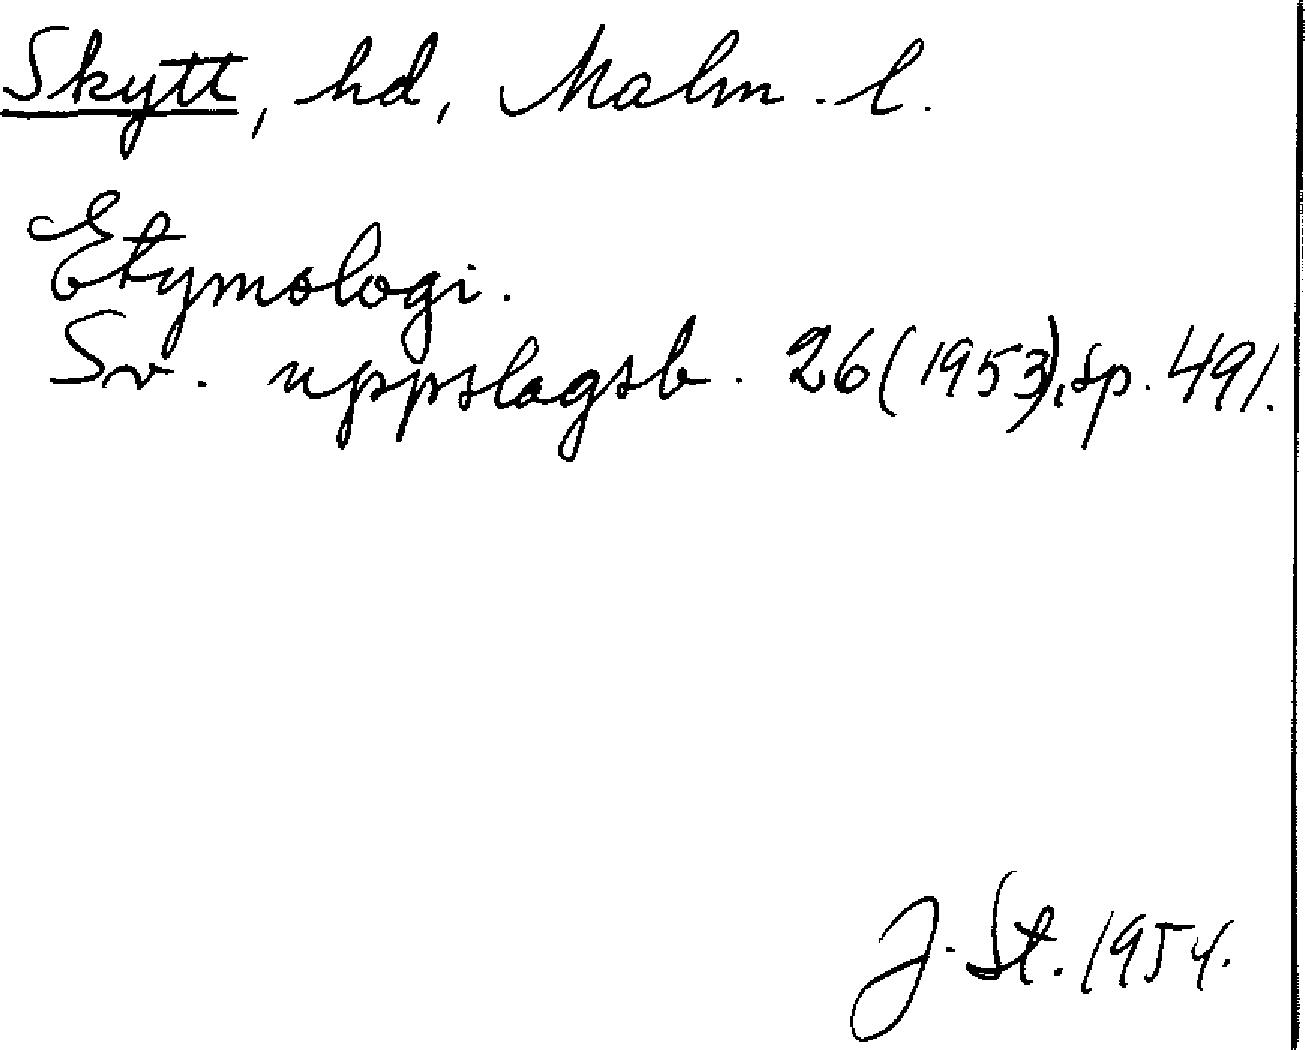 Skytt, hd, Malm. l.
Etymologi.
Sv. uppslagsb. 26 (1953), sp. 491.
J. St. 1954.